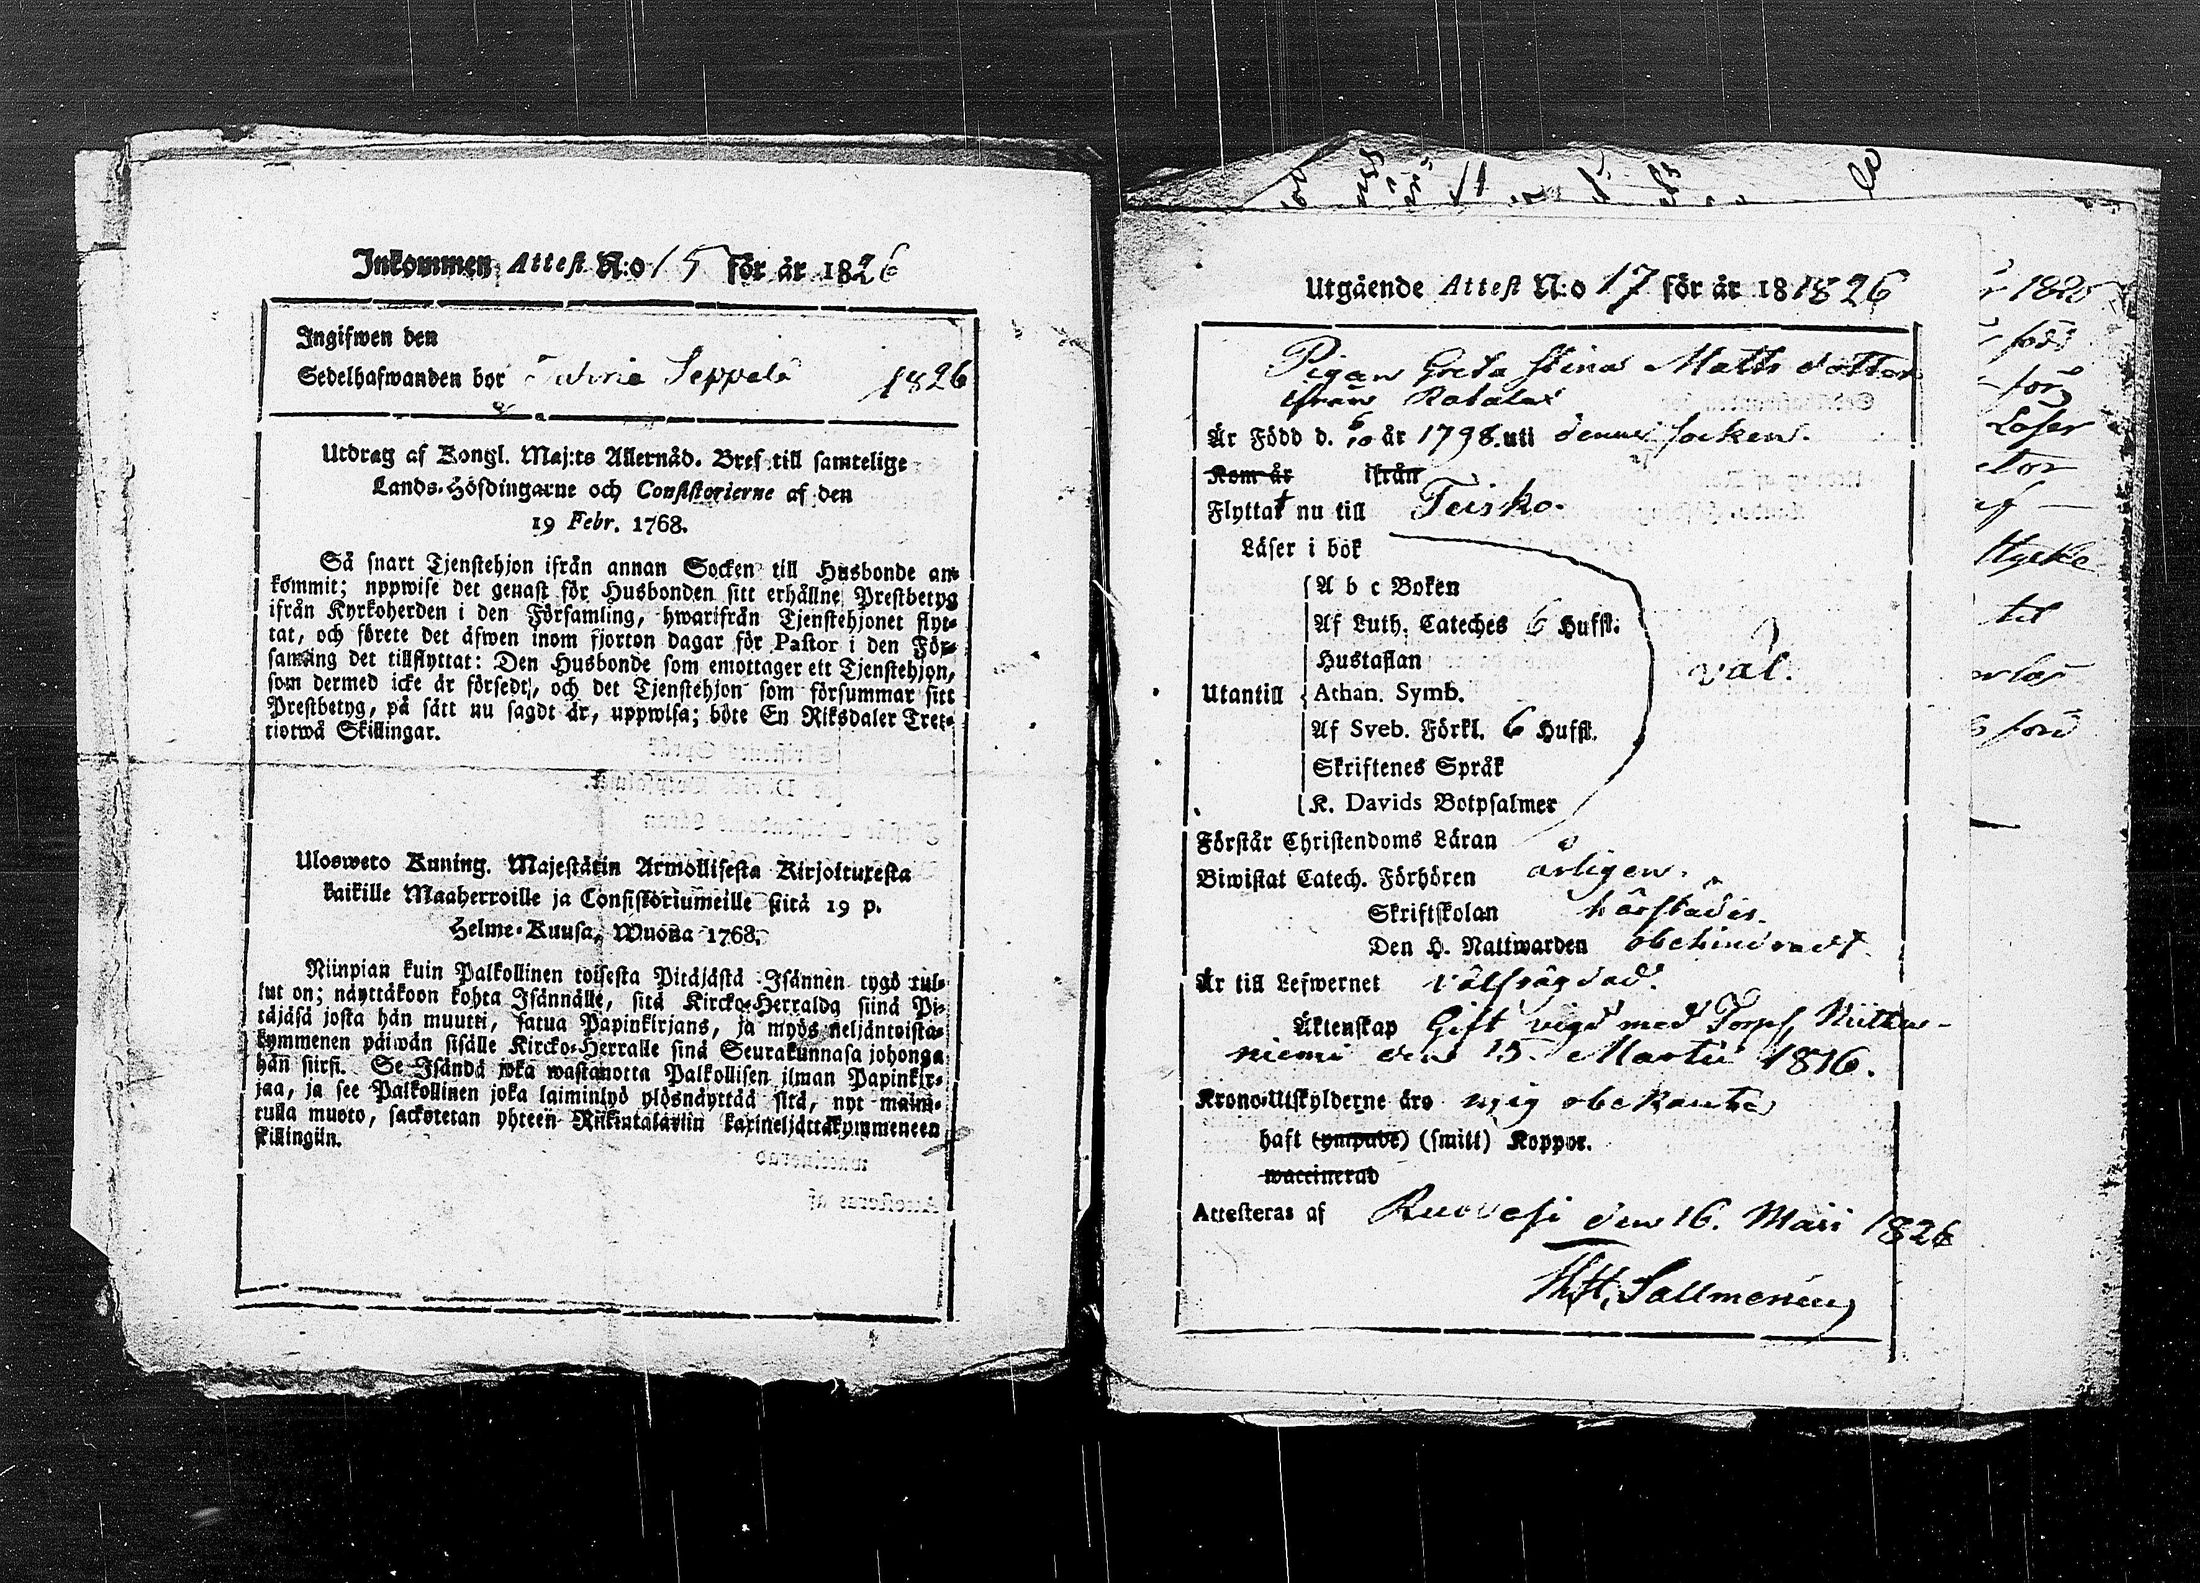 Inkommen Attest N:o 15 för år 1826
Ingifwen den
Sedelhafwanden bor Seppälä 1826
Utdrag af Kongl. Maj:ts Allernåd. Bref till samtelige
Lands-Höfdingarne och Consistorierne af den
19 Febr. 1768.
Så snart Tjenstehjon ifrån annan Socken till Husbonde an-
kommit; uppwise det genast för Husbonden sitt erhållne Prestbetyg
ifrån Kyrkoherden i den Församling, hwarifrån Tjenstehjonet flyt-
tat, och förete det äfwen inom fjorton dagar för Pastor i den För-
samling det tillflyttat: Den Husbonde som emottager ett Tjenstehjon,
som dermed icke är försedt, och det Tjenstehjon som försummar sitt
Prestbetyg, på sätt nu sagdt är, uppwisa; böte En Riksdaler Tret-
tiotwå Skillingar.
Ulosweto Kuning. Majestätin Armollisesta Kirjoituxesta
kaikille Maaherroille ja Consistoriumeille siitä 19 p.
Helme-Kuusa, Wuonna 1768.
Niinpian kuin Palkollinen toisesta Pitäjästä Isännen tygö tul-
lut on; näyttäkoon kohta Isännälle, sitä Kircko-Herralda siinä Pi-
täjäsä josta hän muutti, satua Papinkirjans, ja myös neljäntoista-
kymmenen päiwän sisälle Kircko-Herralle sinä Seurakunnasa johonga
hän siirsi. Se Isändä joka wastanotta Palkollisen ilman Papinkir-
jaa, ja see Palkollinen joka laiminlyö ylösnäyttää sitä, nyt maini-
tulla muoto, sackotetan yhteen Riikintalariin kaxineljättäkymmeneen
skillingiin.
Utgående Attest N:o 17 för år 18 1826
Pigan Greta Stina Matts dotter
ifrån
Är Född d. 6/10 år 1798. uti denna socken.
Kom år ifrån
Flyttat nu till Teisko.
Läser i bok
A b c Boken
Af Luth. Cateches 6 Hufst.
Hustaflan
väl.
Utantill Athan. Symb.
Af Sveb. Förkl. 6 Hufst.
Skriftenes Språk
K. Davids Botpsalmer
Förstår Christendoms Läran
Biwistat Catech. Förhören årligen.
Skriftskolan härstädes.
Den H. Nattwarden obehindradt.
Är till Lefwernet välfrägdad.
Äktenskap Gift vigd med Torp.
niemi den 15. Martii 1816.
Krono-Utskylderne äro mig obekante
haft (ympade) (smitt) Koppor.
waccinerad
Attesteras af Ruovesi den 16. Maii 1826
Sallmenén